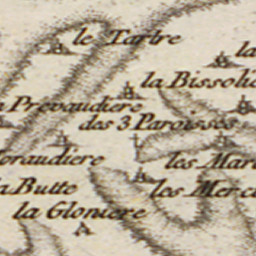 le Tartre
la
la Bissoli
Prevaudiere
des 3 Paroisses
oraudiere
les Mar
la Butte
les Merc
la Gloniere